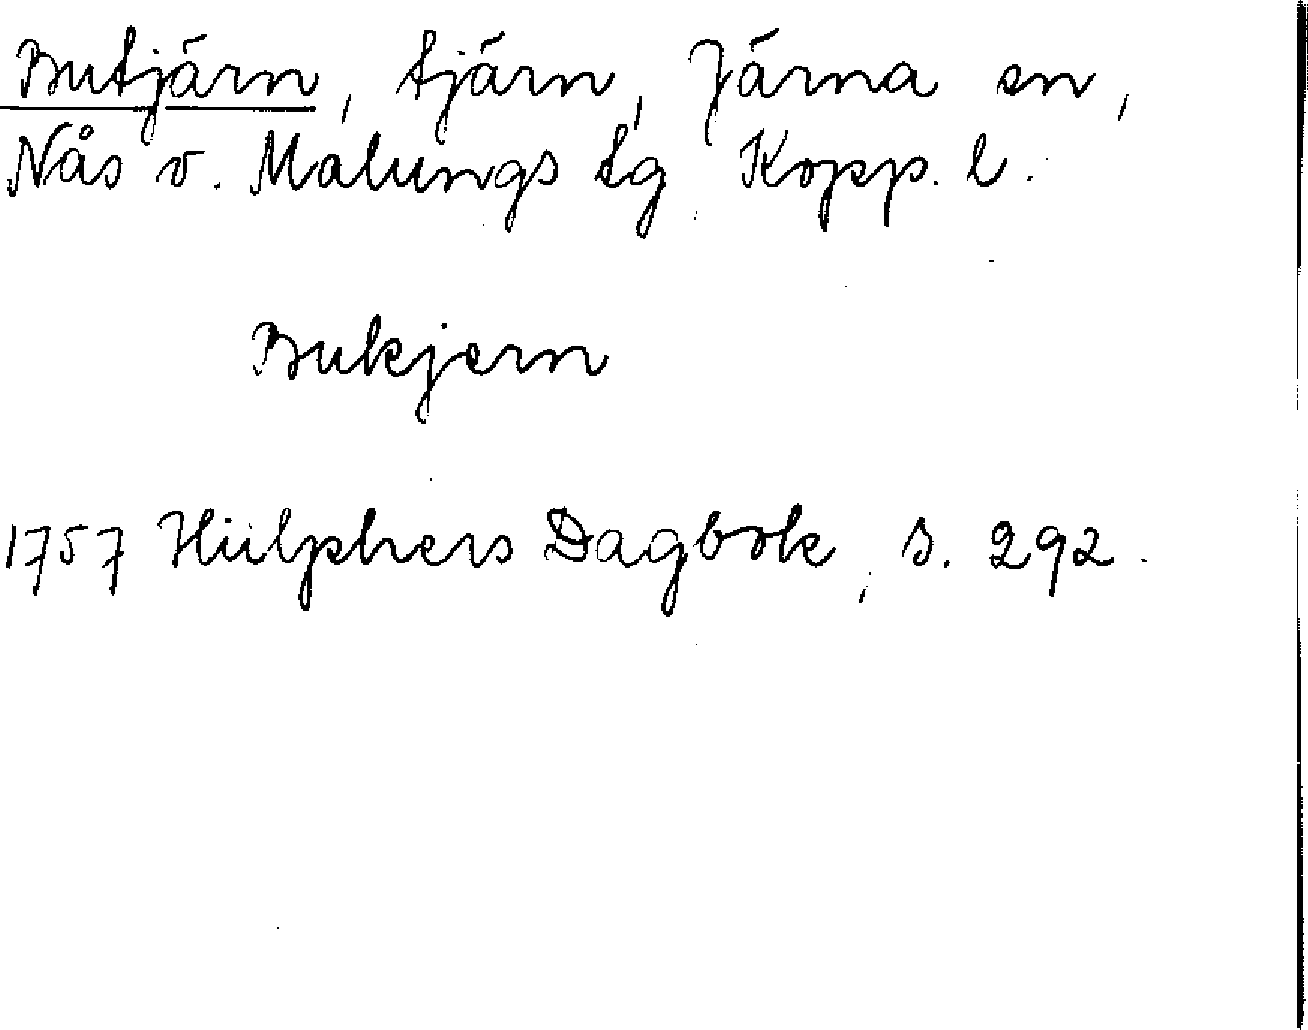 Butjärn, tjärn, Järna sn,
Nås v. Malungs tg Kopp. l.
Bukjern
1757 Hülphers Dagbok, s. 292.